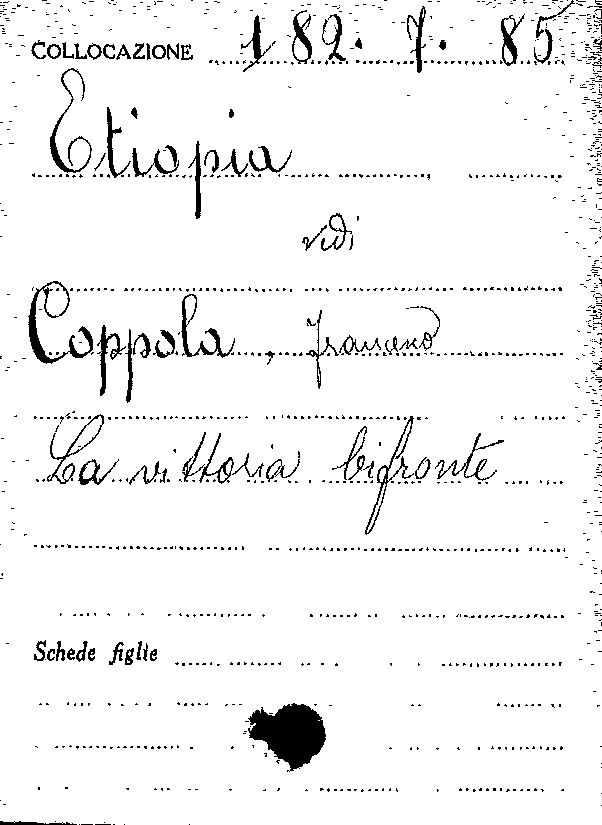 COLLOCAZIONE 182. 7. 85
Etiopia
vedi
Coppola, Francesco
La vittoria bifronte
Schede figlie